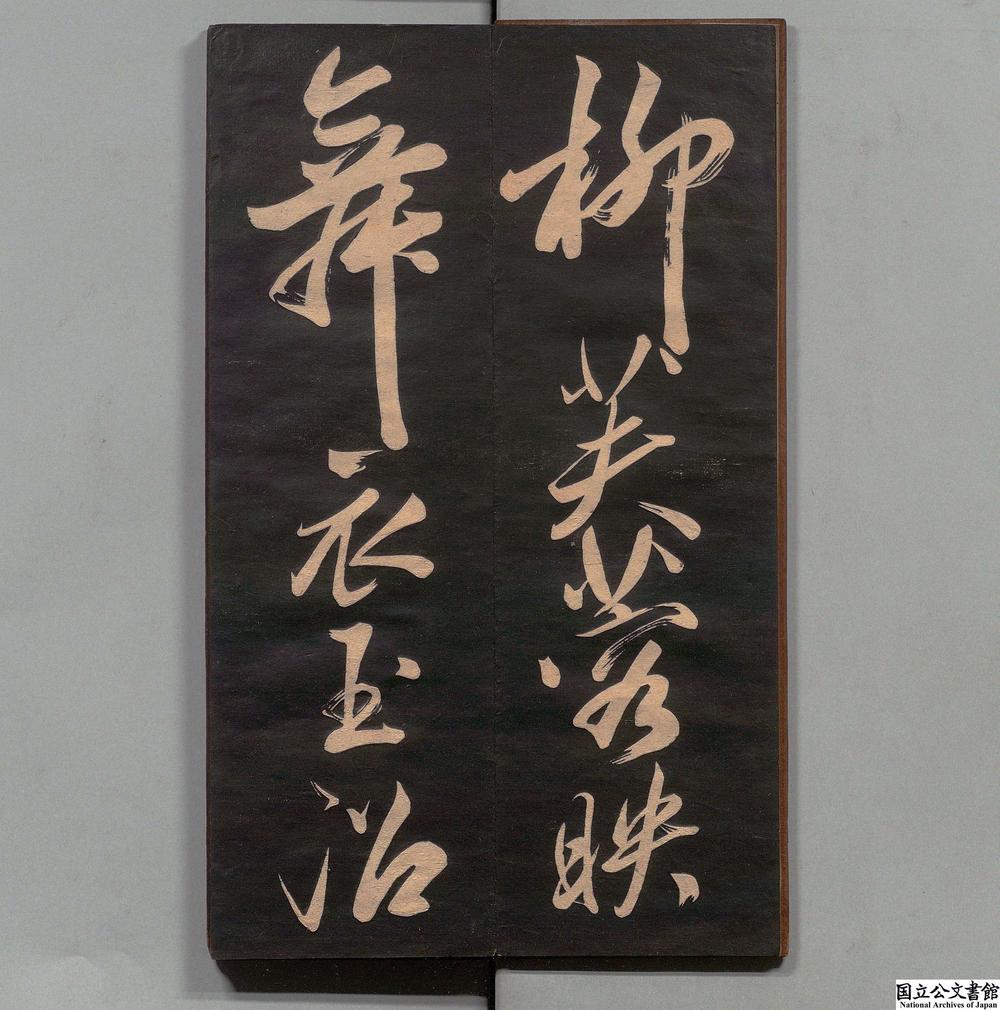 柳芙蓉映
舞衣玉沼
国立公文書館
National Archives of Japan